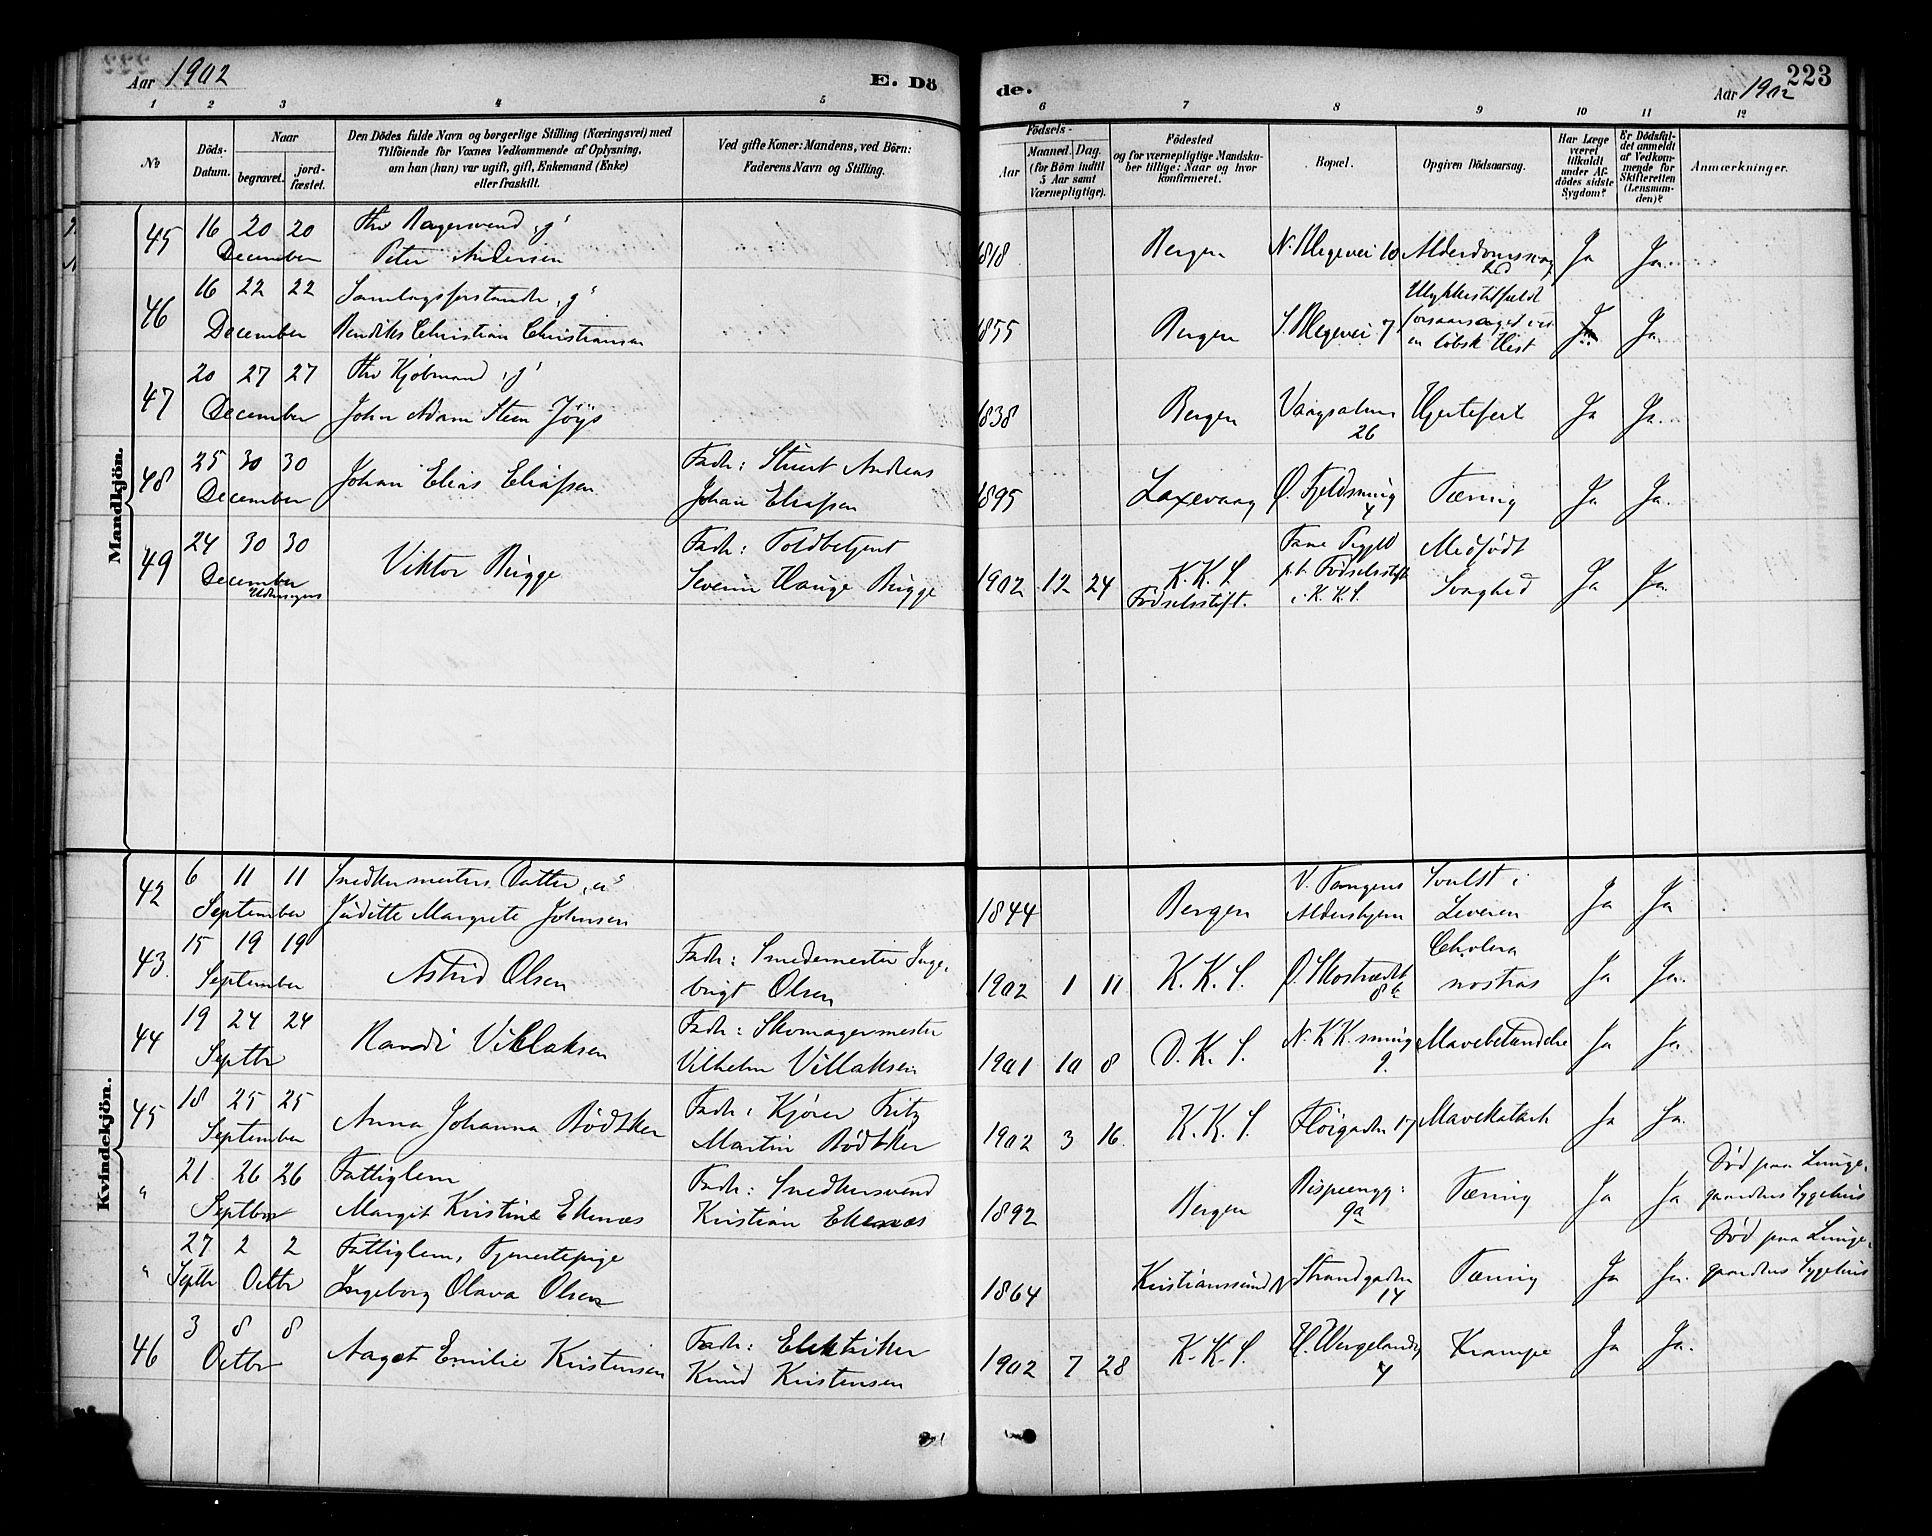 Aar 1902
E. Dö
de.
Aar 1902
223
1 2 3 4 5 6 7 8 9 10 11 12
No
Döds-
Datum.
Naar
begravet.
jord-
fæstet.
Den Dödes fulde Navn og borgerlige Stilling (Næringsvei) med
Tilföiende for Voxnes Vedkommende af Oplysning,
om han (hun) var ugift, gift, Enkemand (Enke)
eller fraskilt.
Ved gifte Koner: Mandens, ved Börn:
Faderens Navn og Stilling.
Födsels-
Aar
Maaned.
Dag.
(for Börn indtil
5 Aar samt
Værnepligtige).
Födested
og for værnepligtige Mandska-
ber tillige: Naar og hvor
konfirmeret.
Bopæl.
Opgiven Dödsaarsag.
Har Læge
været
tilkaldt
under Af-
dödes sidste
Sygdom?
Er Dödsfal-
det anmeldt
af Vedkom-
mende for
Skifteretten
(Lensman-
den)?
Anmærkninger.
Mandkjön.
45 16 20 20
December
fhv Bagersvend „g“
Peter Andersen
1818 Bergen N. Blegevei 10 Alderdomssvaghed Ja Ja
46 16 22 22
December
Samlagsforstander „g“
Bendiks Christian Christiansen
1855 Bergen S. Blegevei 7
Ulykkestilfældt
foraarsaget ved
en løbsk Hest
Ja
47 20 27 27
December
fhv Kjøbmand „g“
John Adam Steen Jøys
1838 Bergen
26
Hjertefeil Ja Ja
48 25 30 30
December
Johan Elias Eliassen
Fadr: Stuert Andreas
Johan Eliassen
1895 Laxevaag Ø. Fjeldsmug
4
Tæring Ja Ja
49 24 30 30
December
Viktor Bugge
Fadr: Toldbetjent
Severin Hauge Bugge
1902 12 24
K.K.S.
Fødselsstift.
p.t. Fødselsstift.
i K.K.S.
Medfødt
Svaghed
Ja Ja
Kvindekjön.
42 6 11 11
September
Snedkermesters Datter „u“
Juditte Margrete Johnsen
1844 Bergen
V. Tangens
Aldershjem
Svulst i
Leveren
Ja Ja
43. 15 19 19
September
Astrid Olsen
Fadr: Smedemester Inge-
brigt Olsen
1902 1 11 K.K.S. Ø. Skostrædet
8b
Cholera
nostras
Ja Ja
44 19 24 24
Septbr
Randi Villaksen
Fadr: Skomagermester
Vilhelm Villaksen
1901 10 8 D.K.S. N.K.K. smug
9.
Mavebetændelse Ja Ja
45 18 25 25
September
Anna Johanna Bødtker
Fadr: Kjører Fritz
Martin Bødtker
1902 3 16. K.K.S. Fløigaden 17 Mavekatarh Ja Ja
„ 21. 26 26
Septbr
Fattiglem
Margit Kristine Ekenæs
Fadr: Snedkersvend
Kristian Ekenæs
1892 Bergen Bispeengg:
9a
Tæring Ja Ja
Død paa Lunge-
gaardens Sygehus
„ 27 2 2
Septbr Octbr
Fattiglem, Tjenestepige
Ingeborg Olava Olsen
1864 Kristianssund N Strandgaden
14
Tæring Ja Ja
Død paa Lunge-
gaardens Sygehus
46 3 8 8
Octbr
Aagot Emilie Kristensen
Fadr: Elektriker
Knud Kristensen
1902 7 28 K.K.S. H. Wergelandsg
4
Krampe Ja Ja